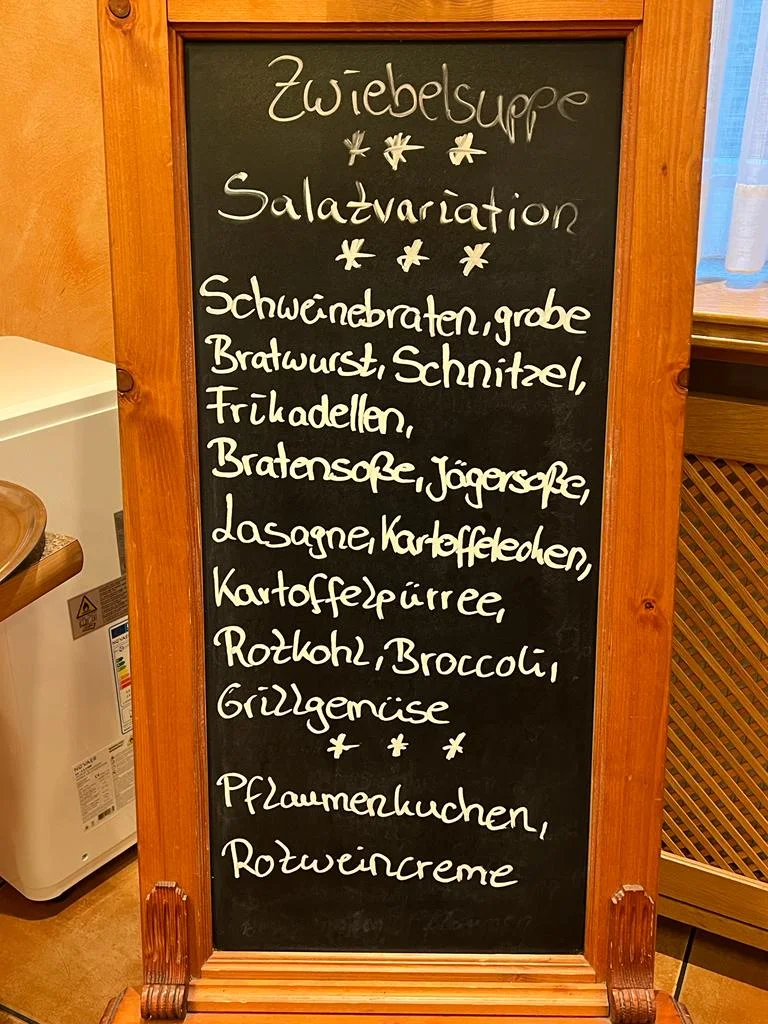 Zwiebelsuppe
* * *
Salatvariation
* * *
Schweinebraten, grobe
Bratwurst, Schnitzel,
Frikadellen,
Bratensoße, Jägersoße,
Lasagne, Kartoffelecken,
Kartoffelpürree,
Rotkohl, Broccoli,
Grillgemüse
* * *
Pflaumenkuchen,
Rotweincreme